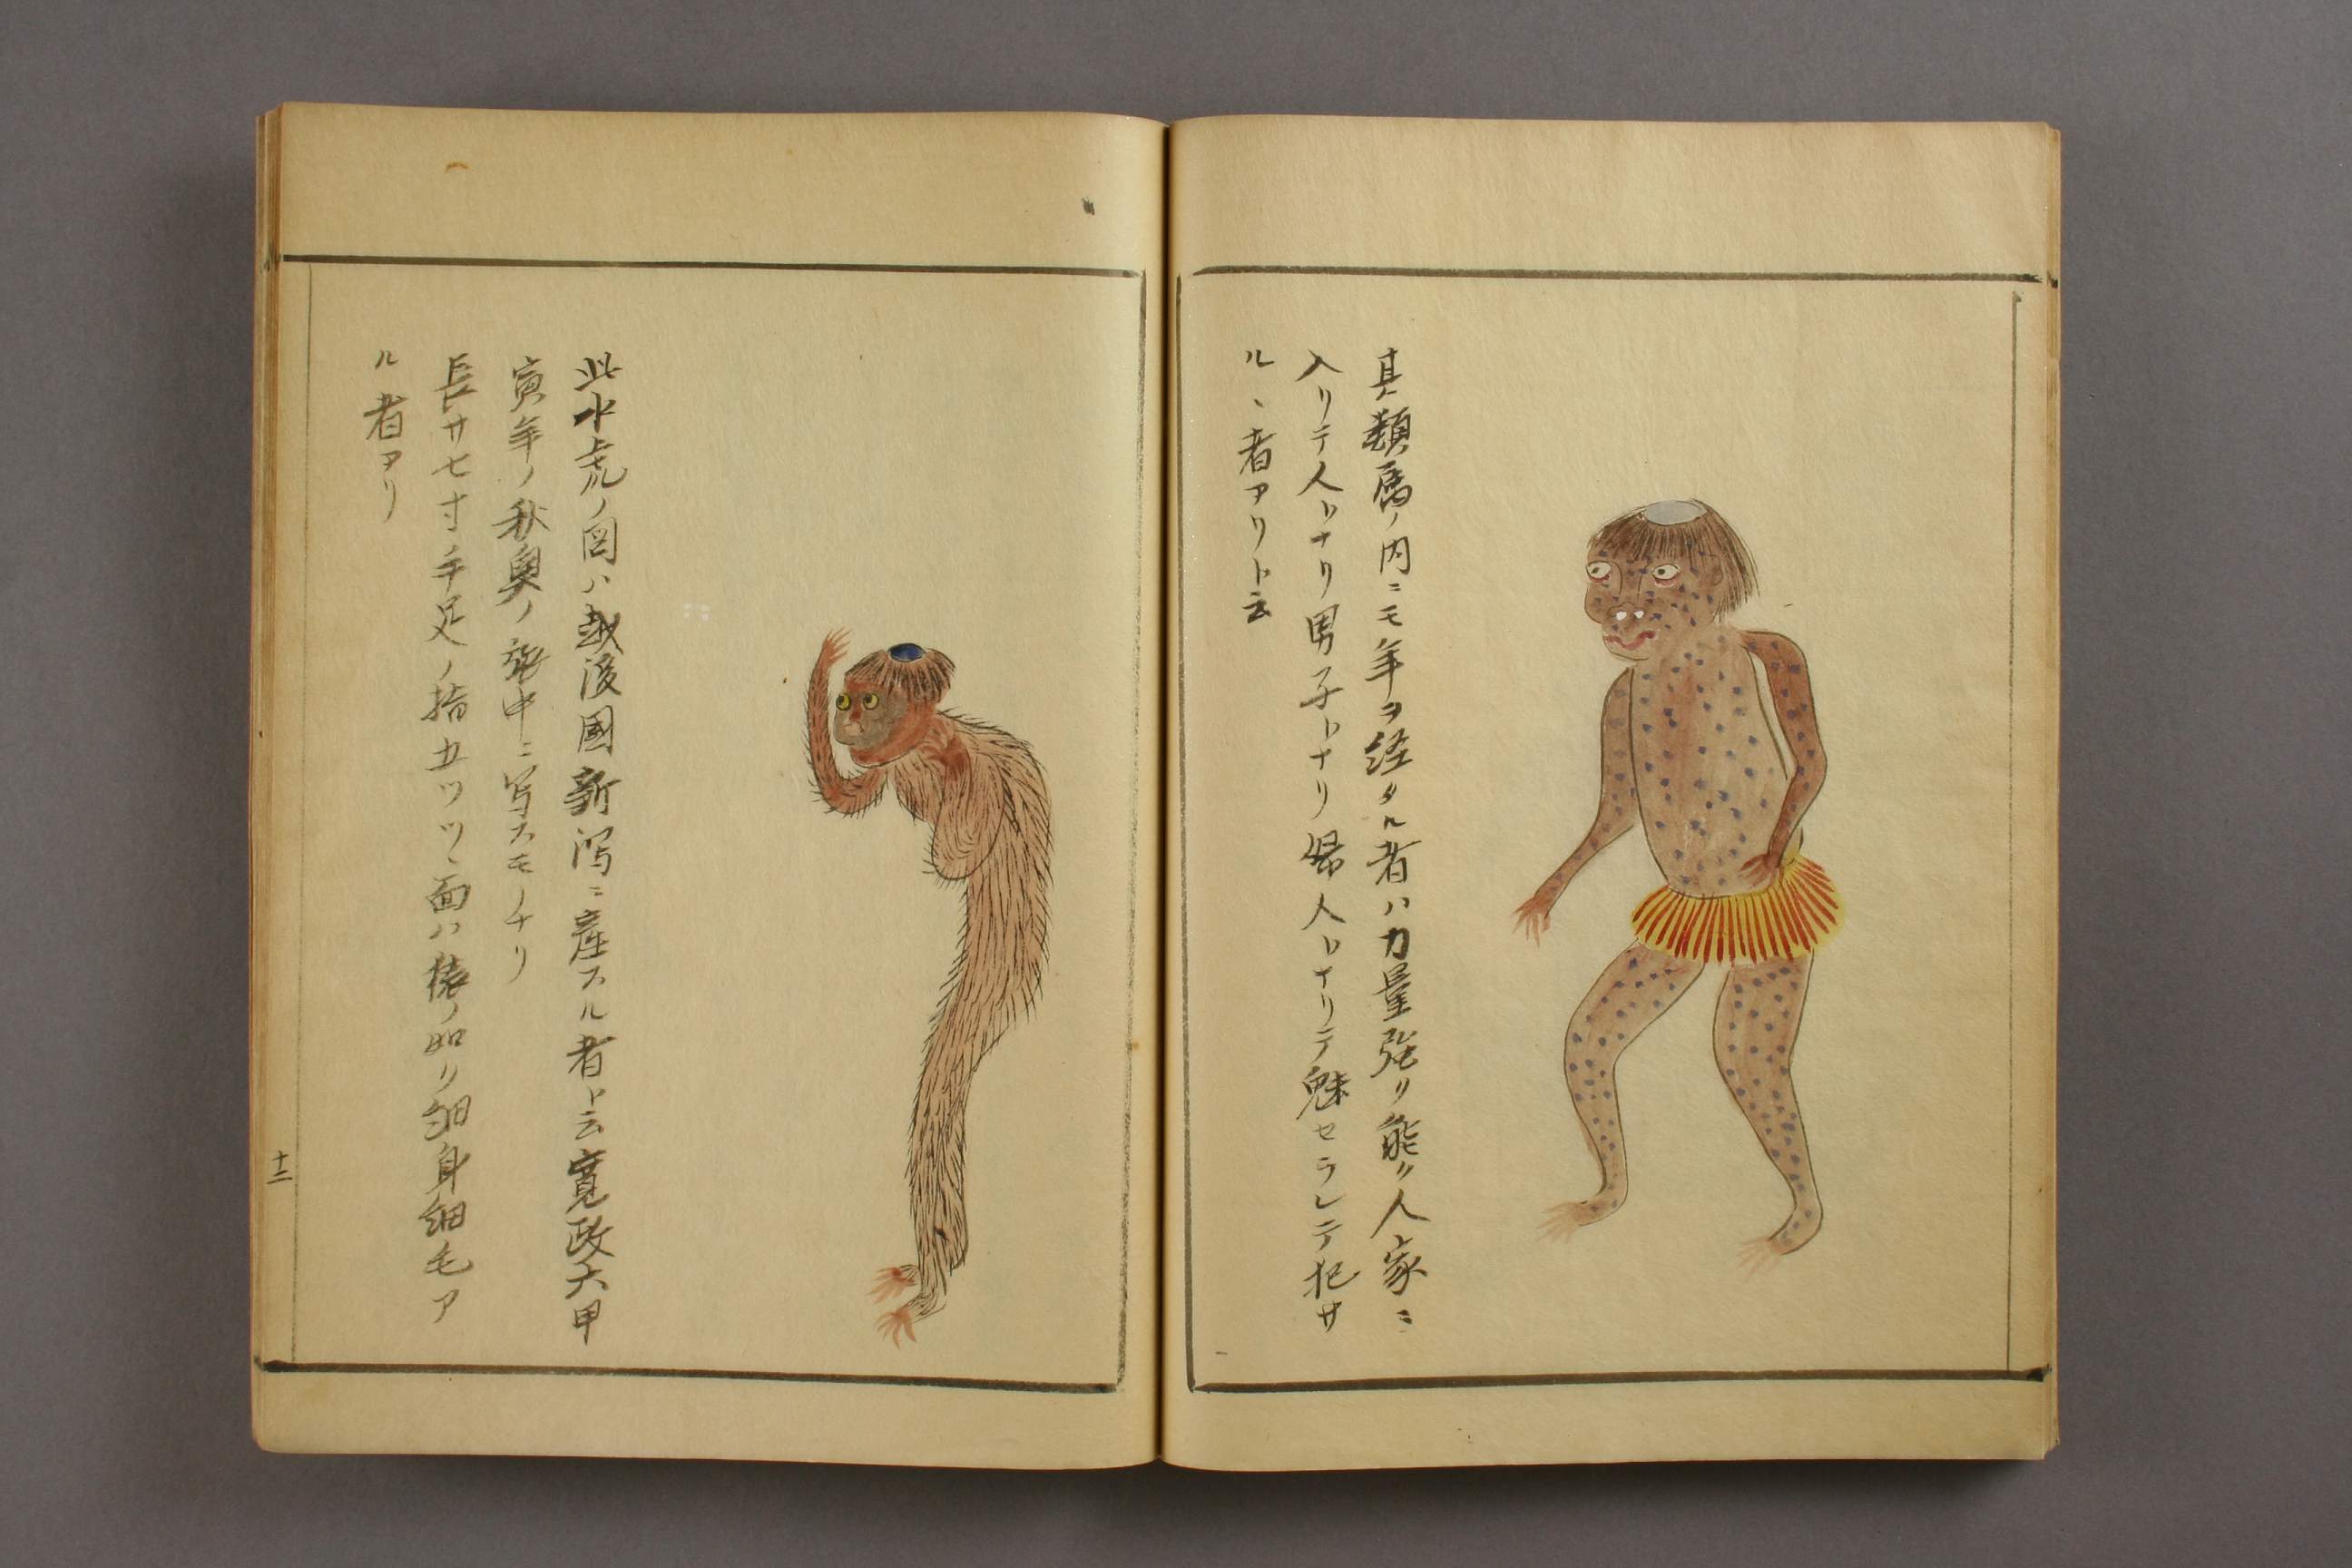 其類属ノ内ニモ年ヲ経タル者ハ力量強リ能ク人家ニ
入リテ人トナリ男子トナリ婦人トナリテ魅セラレテ犯サ
ルヽ者アリト云
此水虎ノ図ハ越後國新潟ニ産スル者ト云寛政六甲
寅年ノ秋奥ノ旅中ニ写スモノナリ
長サ七寸手足ノ指五ツツヽ面ハ猿ノ如リ細身細毛ア
ル者アリ
十二